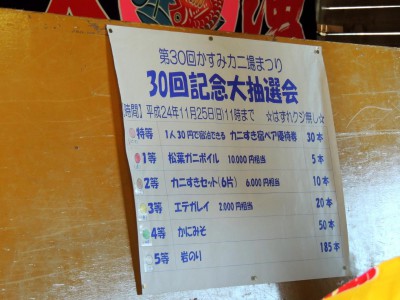 第30回かすみカニ場まつり
30回記念大抽選会
時間】平成24年11月25日(日)11時まで ☆はずれクジ無し☆
特等 1人30円で宿泊できる カニすき宿ペア優待券 30本
1等 松葉ガニボイル 10.000円相当 5本
2等 カニすきセット(6片) 6.000円相当 10本
3等 エテガレイ 2.000円相当 20本
4等 かにみそ 50本
5等 岩のり 185本